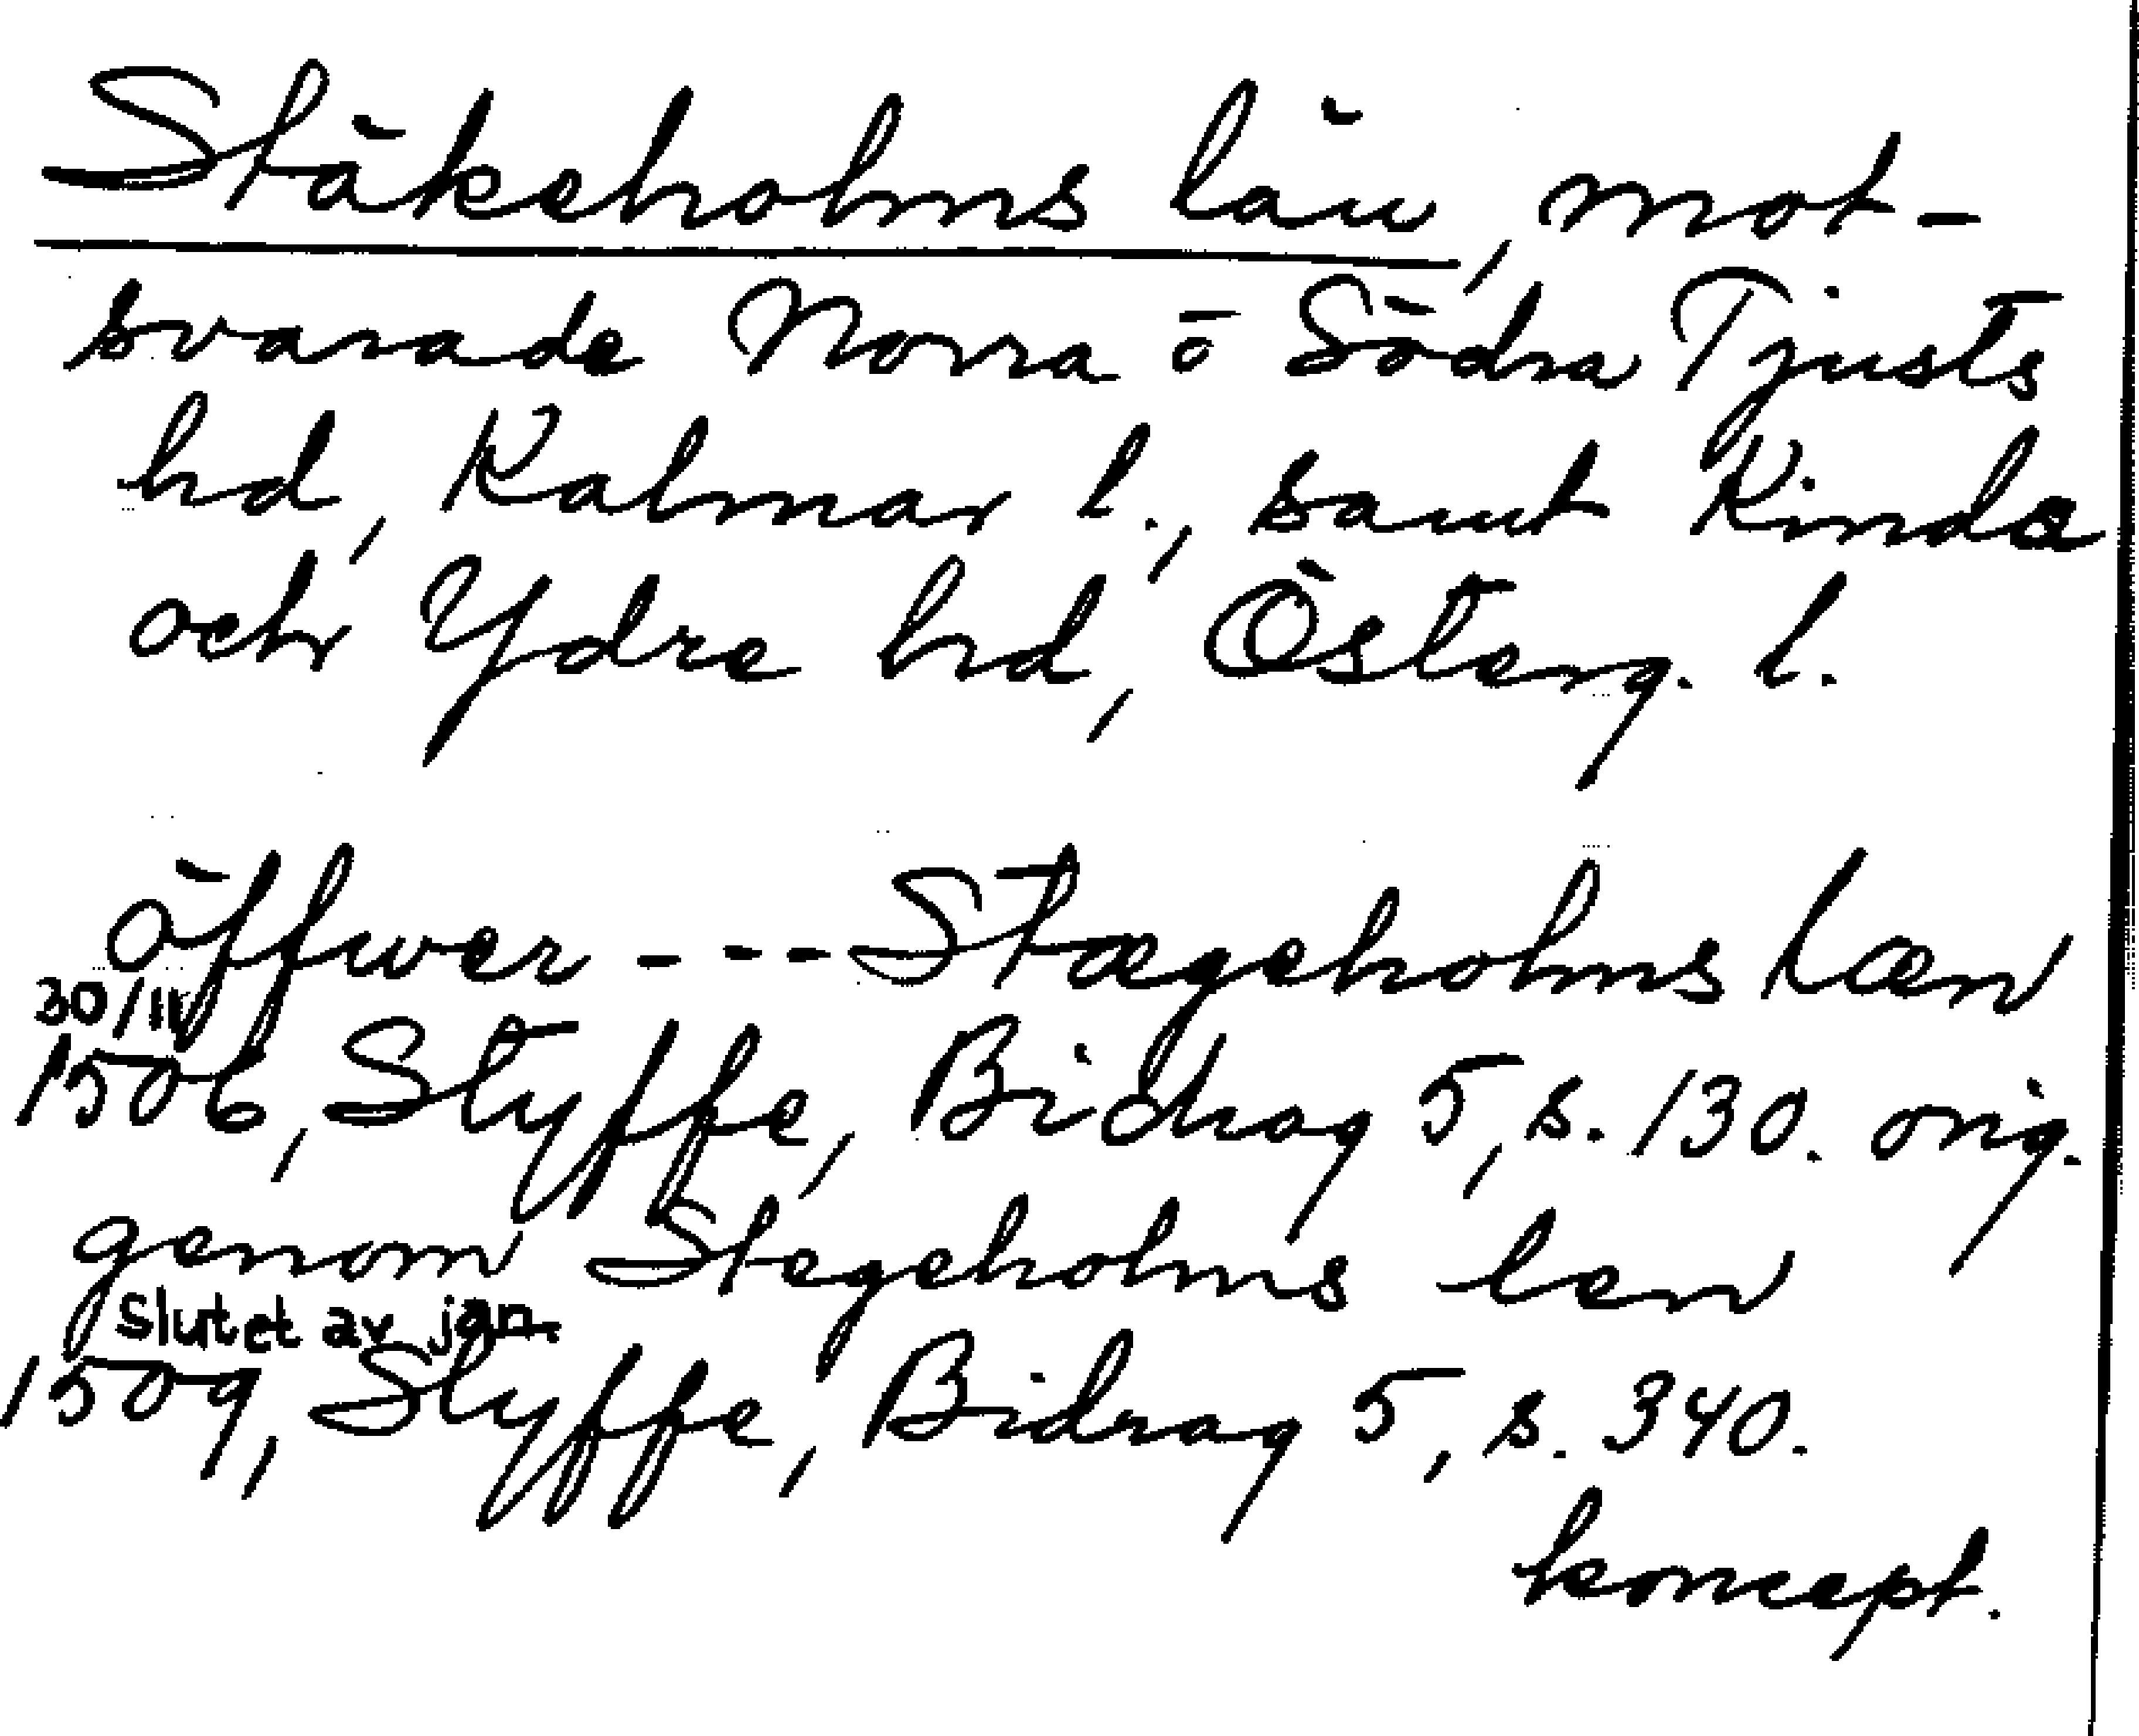 Stäkeholms län, mot-
svarade Norra o Södra Tjusts
hd, Kalmar l., samt Kinda
och Ydre hd, Österg. l.
öffwer - - - Stægeholms læn
30/11
1506, Styffe, Bidrag 5, s. 130. orig.
genom Stegeholms len
Slutet av jan.
1509, Styffe, Bidrag 5, s. 340.
koncept.